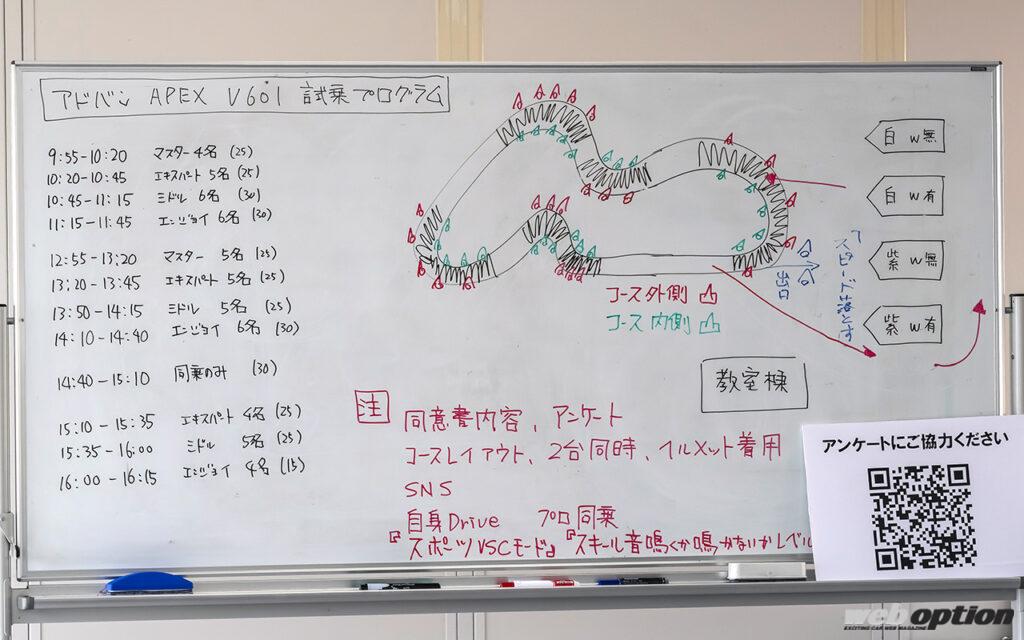 アドバン APEX V601 試乗プログラム
9:55-10:20 マスター 4名 (25)
10:20-10:45 エキスパート 5名 (25)
10:45-11:15 ミドル 6名 (30)
11:15-11:45 エンジョイ 6名 (30)
12:55-13:20 マスター 5名 (25)
13:20-13:45 エキスパート 5名 (25)
13:50-14:15 ミドル 5名 (25)
14:10-14:40 エンジョイ 6名 (30)
14:40-15:10 同乗のみ (30)
15:10-15:35 エキスパート 4名 (25)
15:35-16:00 ミドル 5名 (25)
16:00-16:15 エンジョイ 4名 (15)
自 W無
自 W有
紫 W無
紫 W有
出口
スピード落とす
コース外側
コース内側
教室棟
注
同意書内容、アンケート
コースレイアウト、2台同時、ヘルメット着用
SNS
自身Drive プロ同乗
『スポーツVSCモード』『スキール音鳴くか鳴かないかレベル
アンケートにご協力ください
weboption
EXCITING CAR WEB MAGAZINE